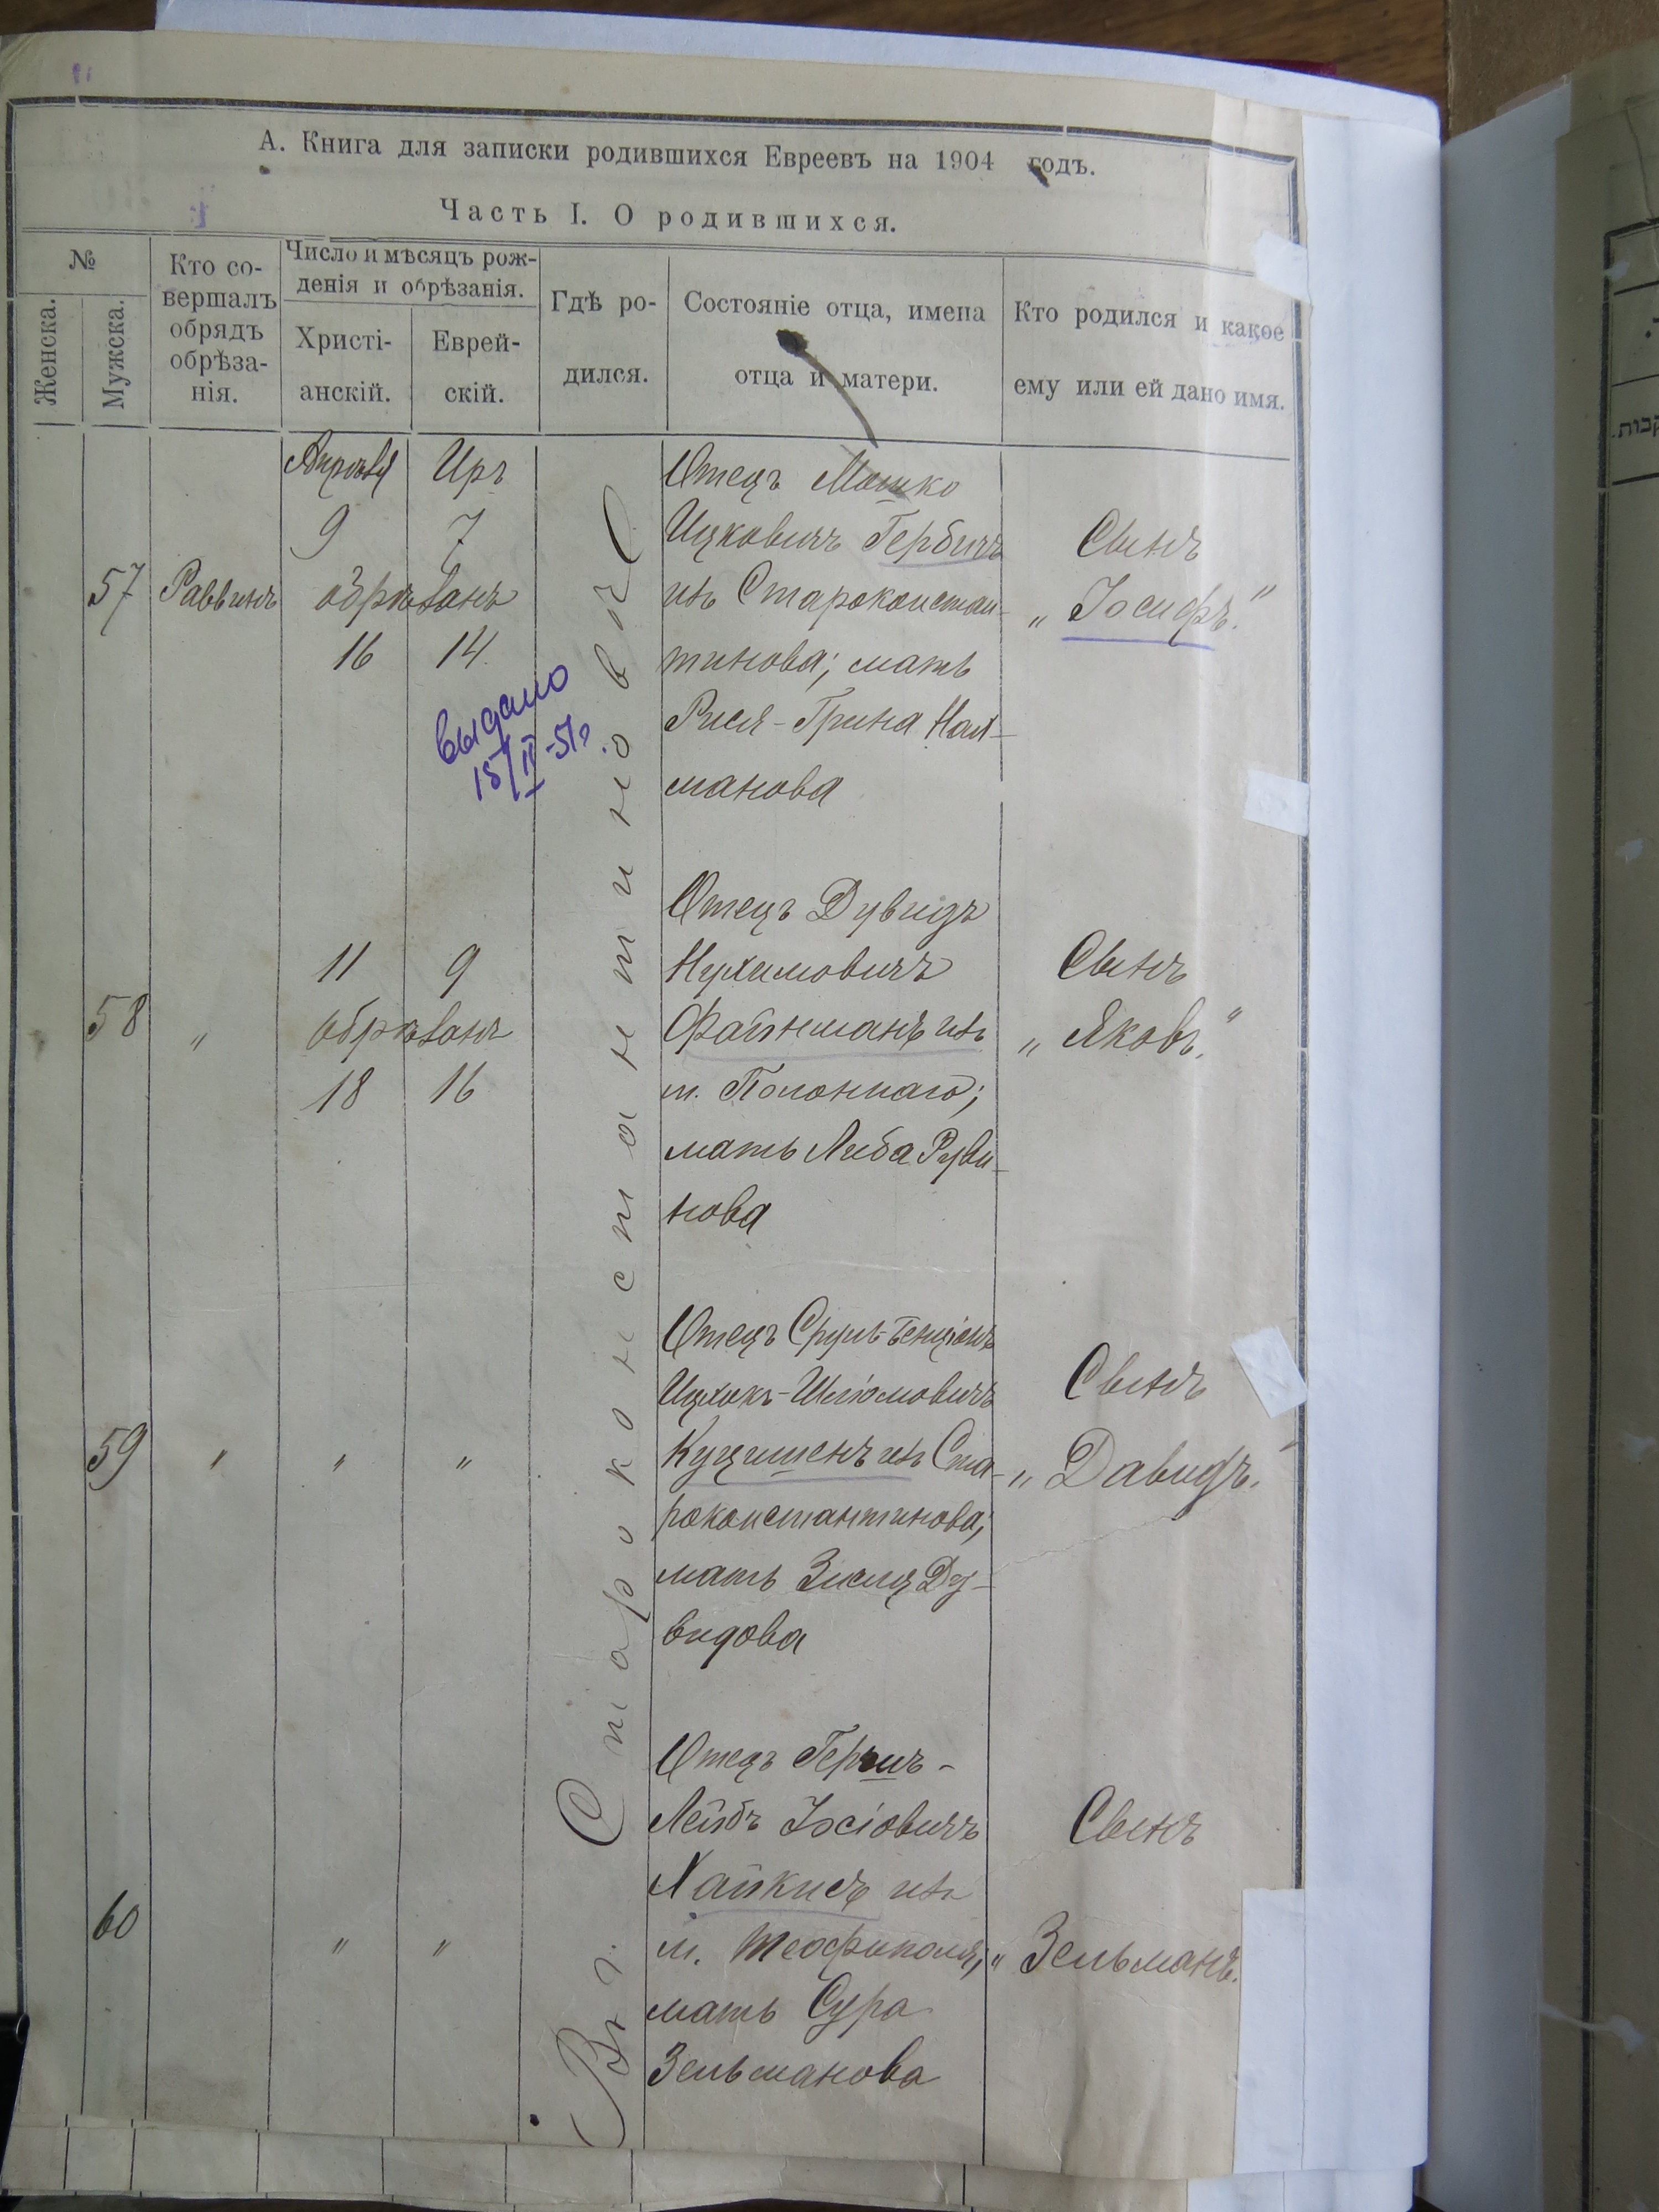 А. Книга для записки родившихся Евреевъ на 1904 годъ.
Часть I. О родившихся.
№
Женска.
Мужска.
Кто со-
вершалъ
обрядъ
обрѣза-
нія.
Число и мѣсяцъ рож-
денія и обрѣзанія.
Христі-
анскій.
Еврей-
скій.
Гдѣ ро-
дился.
Состояніе отца, имена
отца и матери.
Кто родился и какое
ему или ей дано имя.
Въ г. Староконстантиновѣ
57
Раввинъ
Апрѣля Иръ
9 7
обрѣзанъ
16 14
выдано
Отецъ Мошко
Ицковичъ Гербичъ
изъ Староконстан-
тинова; мать
Рися-Грина Нах-
манова
Сынъ
„Іосифъ."
58
„
11 9
обрѣзанъ
18 16
Отецъ Дувидъ
Нухимовичъ
Файнманъ изъ
м. Полоннаго;
мать Либа Руви-
нова
Сынъ
„Яковъ."
59
„ „ „
Отецъ Сруль-Бенціонъ
Ицхокъ-Шлёмовичъ
Куцишенъ изъ Ста-
роконстантинова;
мать Зисля Ду-
видова
Сынъ
„Давидъ."
60
„ „
Отецъ Гершъ-
Лейбъ Іосіовичъ
Хайкисъ изъ
м. Теофиполя;
мать Сура
Зельманова
Сынъ
„Зельманъ.